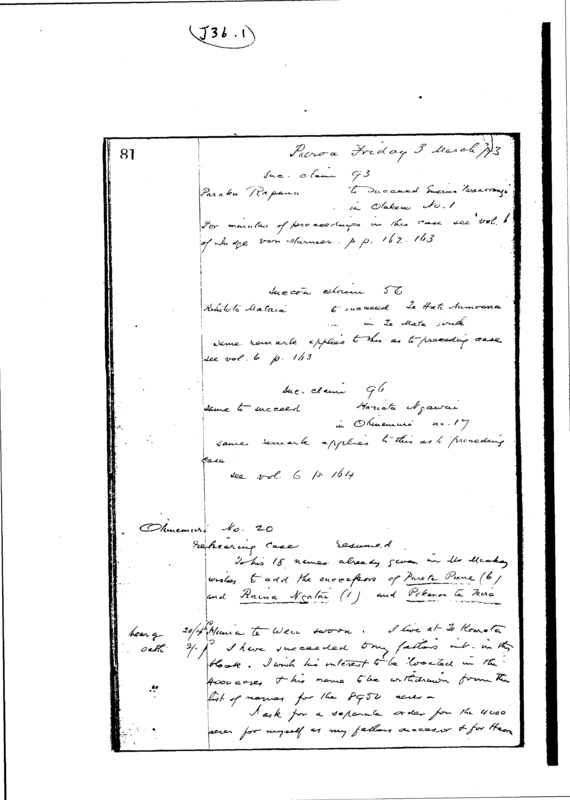 J36.1
81
Paeroa Friday 3 March /93
Suc. claim 93
Paraku Rapana to succeed
in No. 1
For minutes of proceedings in this case see vol. 6
of Judge von Sturmer. pp. 162. 163
claim 56
to succeed Te
in Te Mata south
same remark applies to this as to preceding case
see vol. 6 p. 163
Suc. claim 96
same to succeed Hariata Ngawai
in Ohinemuri no. 17
same remark applies to this as to preceding
case
see vol. 6 p. 164
Ohinemuri No. 20
Rehearing Case resumed
To his 18 names already given in Mr Mackay
wishes to add the successors of Pune (6)
and Raina Ngatai (1) and
hearg 20/-
oath 2/-
te Weu sworn. I live at Te Komata
I have succeeded to my father's int. in this
block. I wish his interest to be located in the
4000 acres & his name to be withdrawn from the
list of names for the 8950 acres -
I ask for a separate order for the 4000
acres for myself as my fathers successor & for